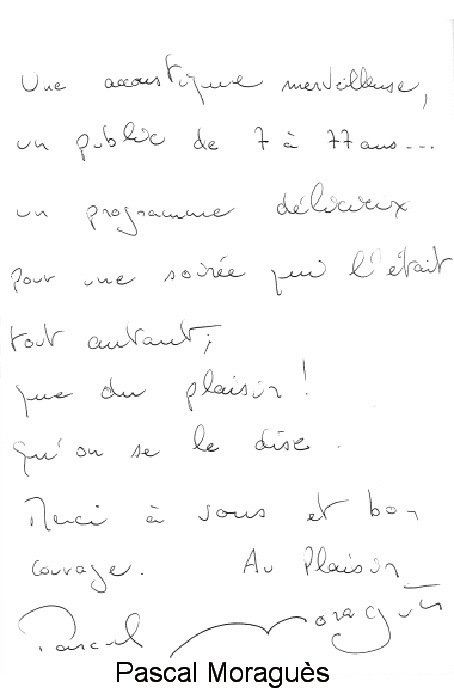 Une acoustique merveilleuse,
un public de 7 à 77 ans...
un programme délicieux
pour une soirée qui l'était
tout autant;
que du plaisir !
Qu'on se le dise.
Merci à vous et bon
courage. Au Plaisir
Pascal Moraguès
Pascal Moraguès